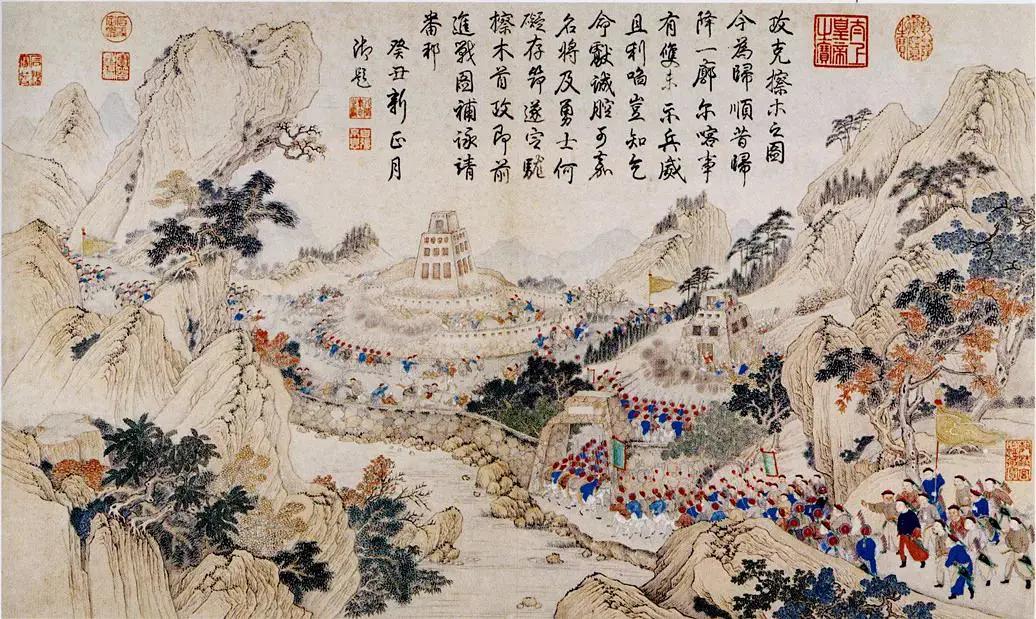 攻克擦木之圖
今為歸順昔歸
降一廓尔喀事
有雙未示兵威
且利啗豈知乞
命獻誠腔可嘉
名將及勇士何
礙存節遂定駹
擦木首攻即前
進戰圖補詠靖
番邦
癸丑新正月
御題
太上皇帝之寶